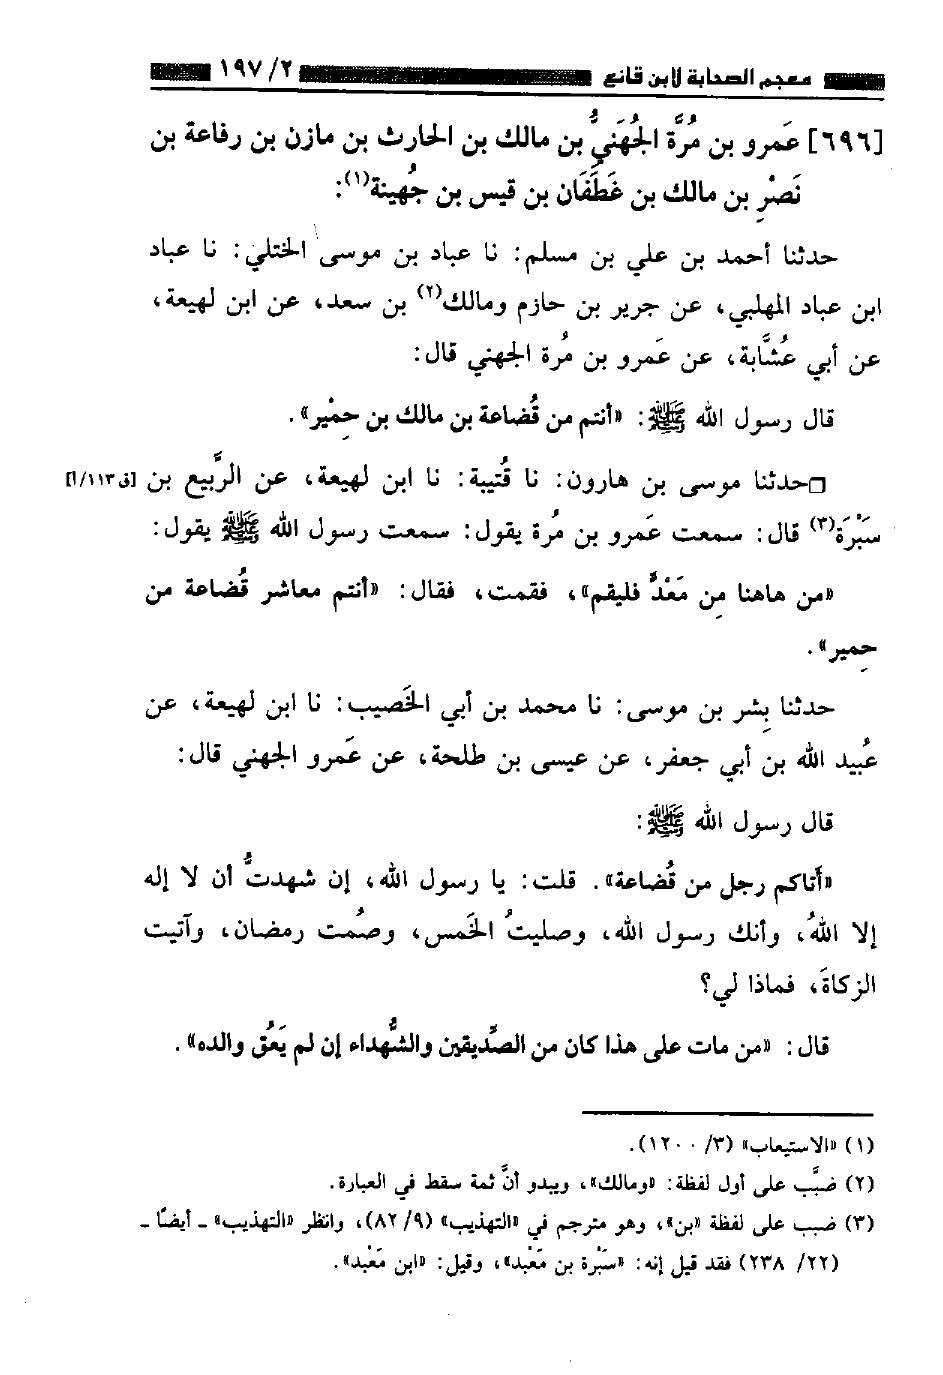 معجم الصحابة لابن قانع ١٩٧/٢
[٦٩٦] عَمرو بن مُرَّة الجُهَنيُّ بن مالك بن الحارث بن مازن بن رفاعة بن
نَصْرِ بن مالك بن غَطَفَان بن قيس بن جُهينة(١):
حدثنا أحمد بن علي بن مسلم: نا عباد بن موسى الختلي: نا عباد
ابن عباد المهلبي، عن جرير بن حازم ومالك(٢) بن سعد، عن ابن لهيعة،
عن أبي عُشَّابة، عن عَمرو بن مُرة الجهني قال:
قال رسول الله ﷺ: «أنتم من قُضاعة بن مالك بن حِمْير».
□حدثنا موسى بن هارون: نا قُتيبة: نا ابن لهيعة، عن الرَّبيع بن [ق١١٣/أ]
سَبْرَة(٣) قال: سمعت عَمرو بن مُرة يقول: سمعت رسول الله ﷺ يقول:
«من هاهنا مِن مَعْدٍّ فليقم»، فقمت، فقال: «أنتم معاشر قُضاعة من
حِمير».
حدثنا بِشر بن موسى: نا محمد بن أبي الخَصيب: نا ابن لهيعة، عن
عُبيد الله بن أبي جعفر، عن عيسى بن طلحة، عن عَمرو الجهني قال:
قال رسول الله ﷺ:
«أَتاكم رجل من قُضاعة». قلت: يا رسول الله، إن شهدتُّ أن لا إله
إلا اللهُ، وأنك رسول الله، وصليتُ الخَمس، وصُمت رمضان، وآتيت
الزكاةَ، فماذا لي؟
قال: «من مات على هذا كان من الصِّديقين والشُّهداء إن لم يَعُق والده».
(١) «الاستيعاب» (٣/ ١٢٠٠).
(٢) ضبَّب على أول لفظة: «ومالك»، ويبدو أنَّ ثمة سقط في العبارة.
(٣) ضبب على لفظة «بن»، وهو مترجم في «التهذيب» (٨٢/٩)، وانظر «التهذيب» ـ أيضًا ـ
(٢٢/ ٢٣٨) فقد قيل إنه: «سَبْرة بن مَعْبد»، وقيل: «ابن مَعْبد».